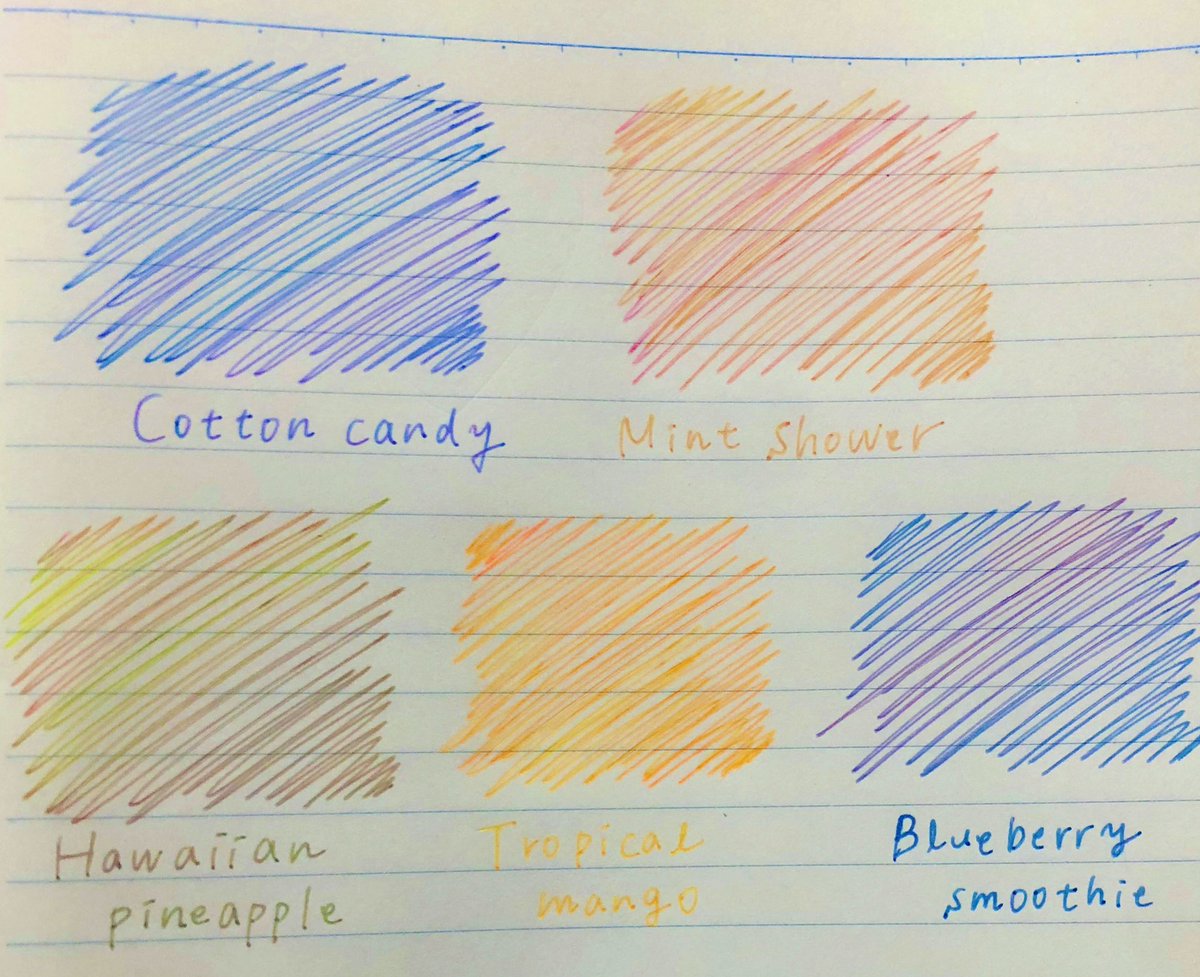 Cotton candy
Mint shower
Hawaiian
pineapple
Tropical
mango
Blueberry
smoothie